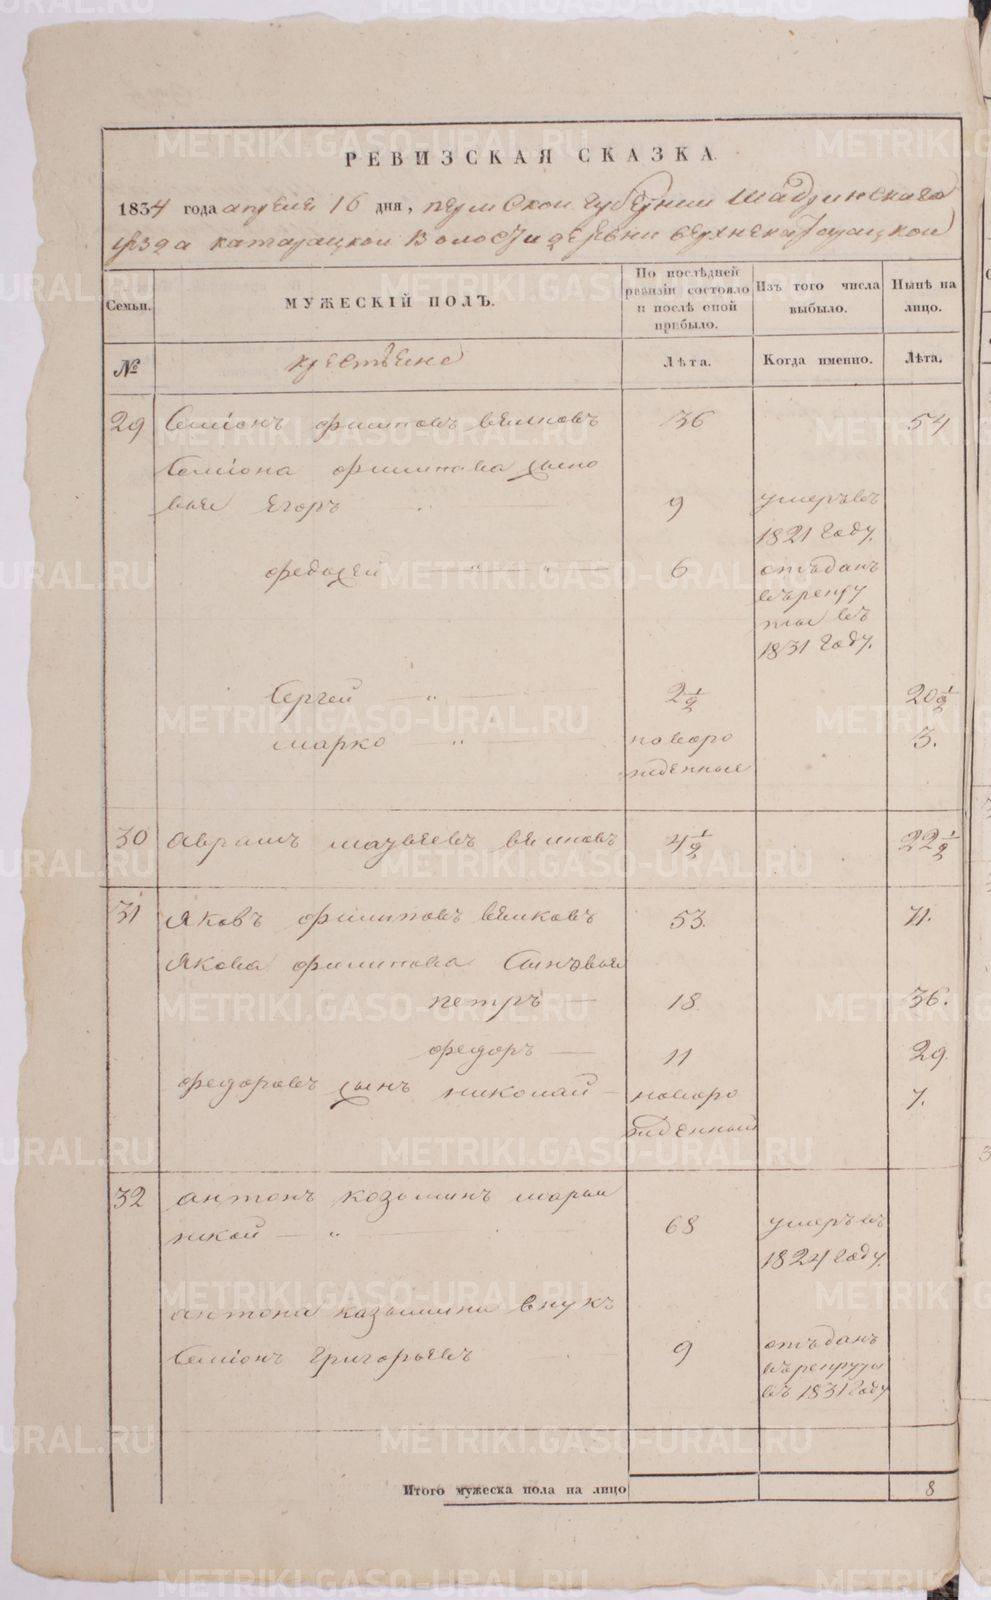 РЕВИЗСКАЯ СКАЗКА.
1834 года апреля 16 дня, пермской губернии Шадринскаго
уезда катайской волости деревни верхнекатайской
Семьи.
МУЖЕСКІЙ ПОЛЪ.
По послѣдней ревизіи состояло и послѣ оной прибыло.
Изъ того числа выбыло.
Нынѣ на лицо.
№
крестьяне
Лѣта.
Когда именно.
Лѣта.
29 Семіонъ филиповъ вялковъ 36 54
Семіона филипова сыно
вья Егоръ 9 умеръ въ
1821 году.
федосей — " — " — 6 отъдан
въ рекру
ты въ
1831 году.
Сергей — " — 2½ 20½
марко — " — новоро 3.
жденные
30 аврамъ матвеевъ вялковъ 4½ 22½
31 яковъ филиповъ вялковъ 53. 71.
якова филипова Сыновья
петръ — 18 36.
федоръ — 11 29.
федоровъ сынъ николай — новоро 7.
жденный
32 антонъ козьминъ
— " — 68 умеръ въ
1824 году.
антона казьмина внукъ
Семіонъ григорьевъ 9 отъданъ
въ рекруты
въ 1831 году
Итого мужеска пола на лицо 8
METRIKI.GASO-URAL.RU